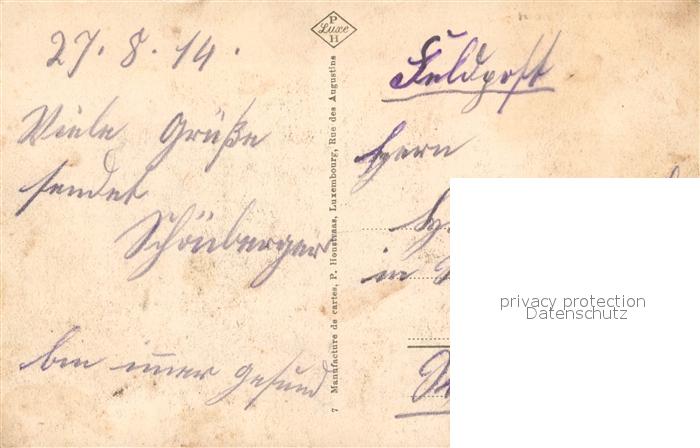 27. 8. 14.
Viele Grüße
sendet
Schönberger
bin immer gesund
P
Luxe
H
7 Manufacture de cartes, P. Houstraas, Luxembourg, Rue des Augustins
Feldpost
Herrn
in
privacy protection
Datenschutz